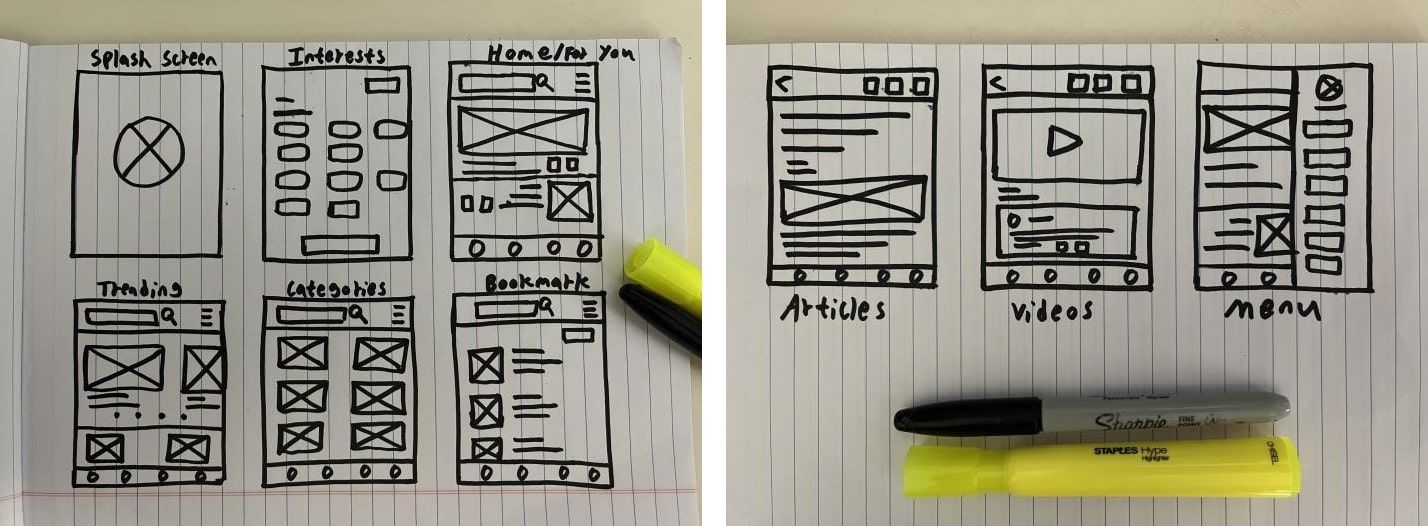 Splash Screen
Interests
Home/For You
Trending
Categories
Bookmark
Articles
Videos
menu
Permanent Marker
Sharpie FINE POINT
STAPLES Hype
Highlighter
CHISEL